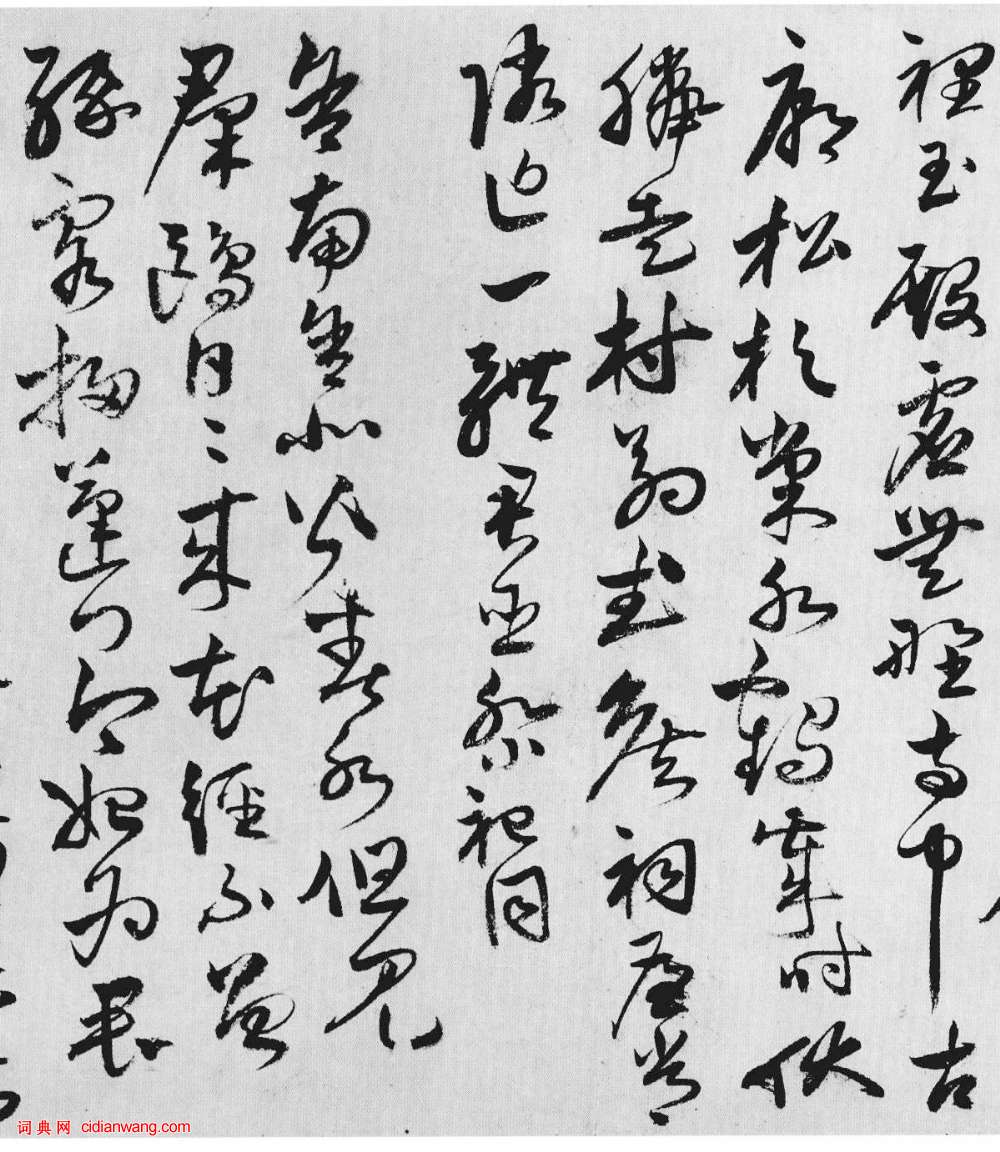 裡玉殿虛無野寺中古
廟松杉巢水鶴歲時伏
臘走村翁武侯祠屋常
隣近一體君臣祭祀同
舍南舍北皆春水但見
羣鷗日〻來花徑不曾
緣客掃蓬門今始為君
词典网 cidianwang.com